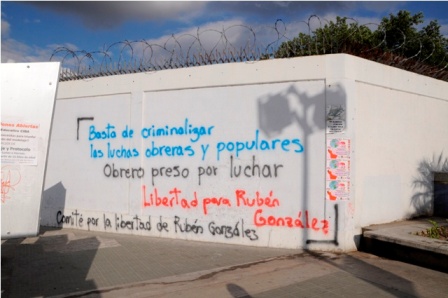 Basta de criminalizar
las luchas obreras y populares
Obrero preso por luchar
Libertad para Rubén
González
Comite por la libertad de Rubén Gonzáles